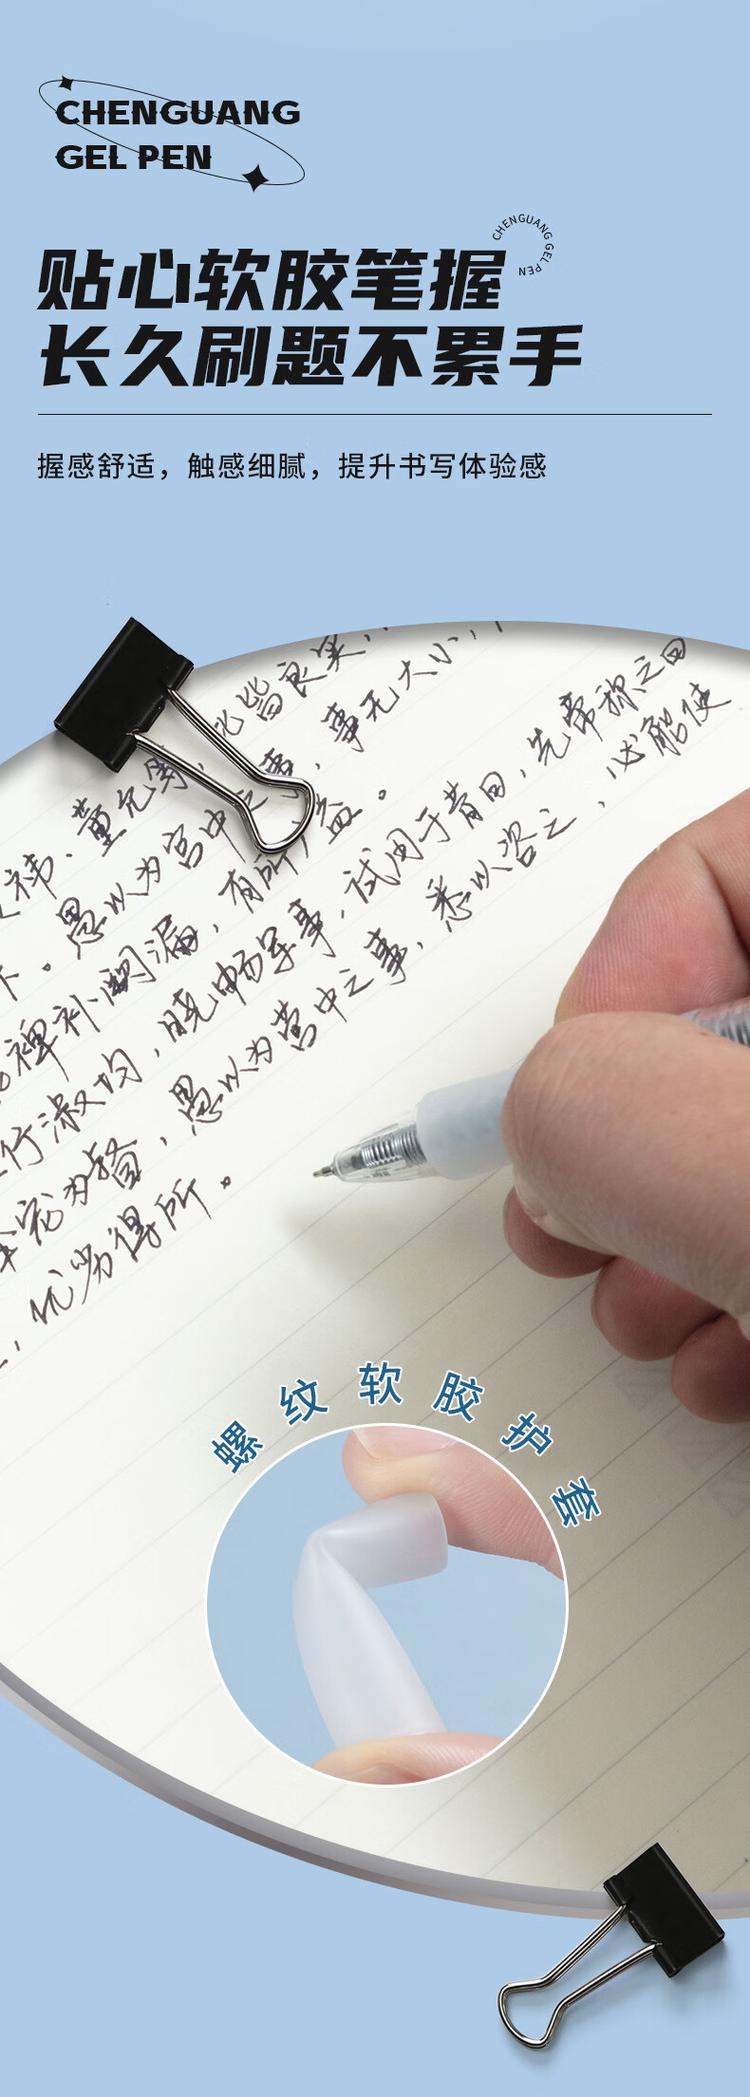 CHENGUANG
GEL PEN
CHENGUANG GEL PEN
贴心软胶笔握
长久刷题不累手
握感舒适，触感细腻，提升书写体验感
此皆良实，
祎、董允等，
事无大小，
下。愚以为宫中之事，
裨补阙漏，有所广益。
行淑均，晓畅军事，试用于昔日，先帝称之曰
众宠为督，愚以为营中之事，悉以咨之，必能使
，优劣得所。
螺纹软胶护套